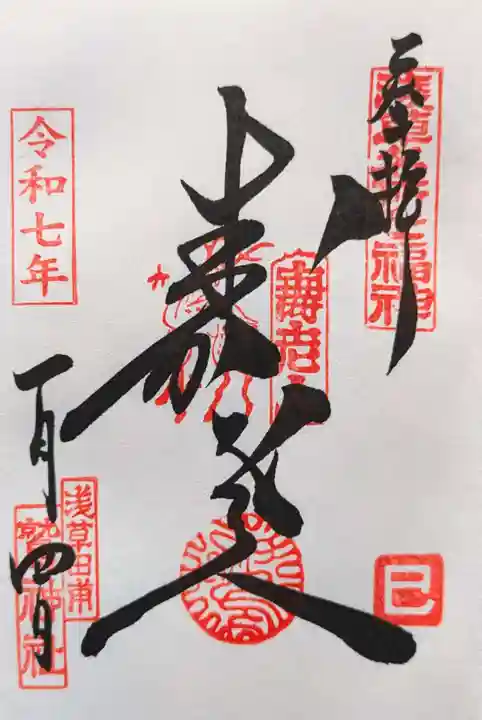 奉拝
浅草名所七福神
寿老人
令和七年
一月四日
浅草田甫
鷲神社
巳